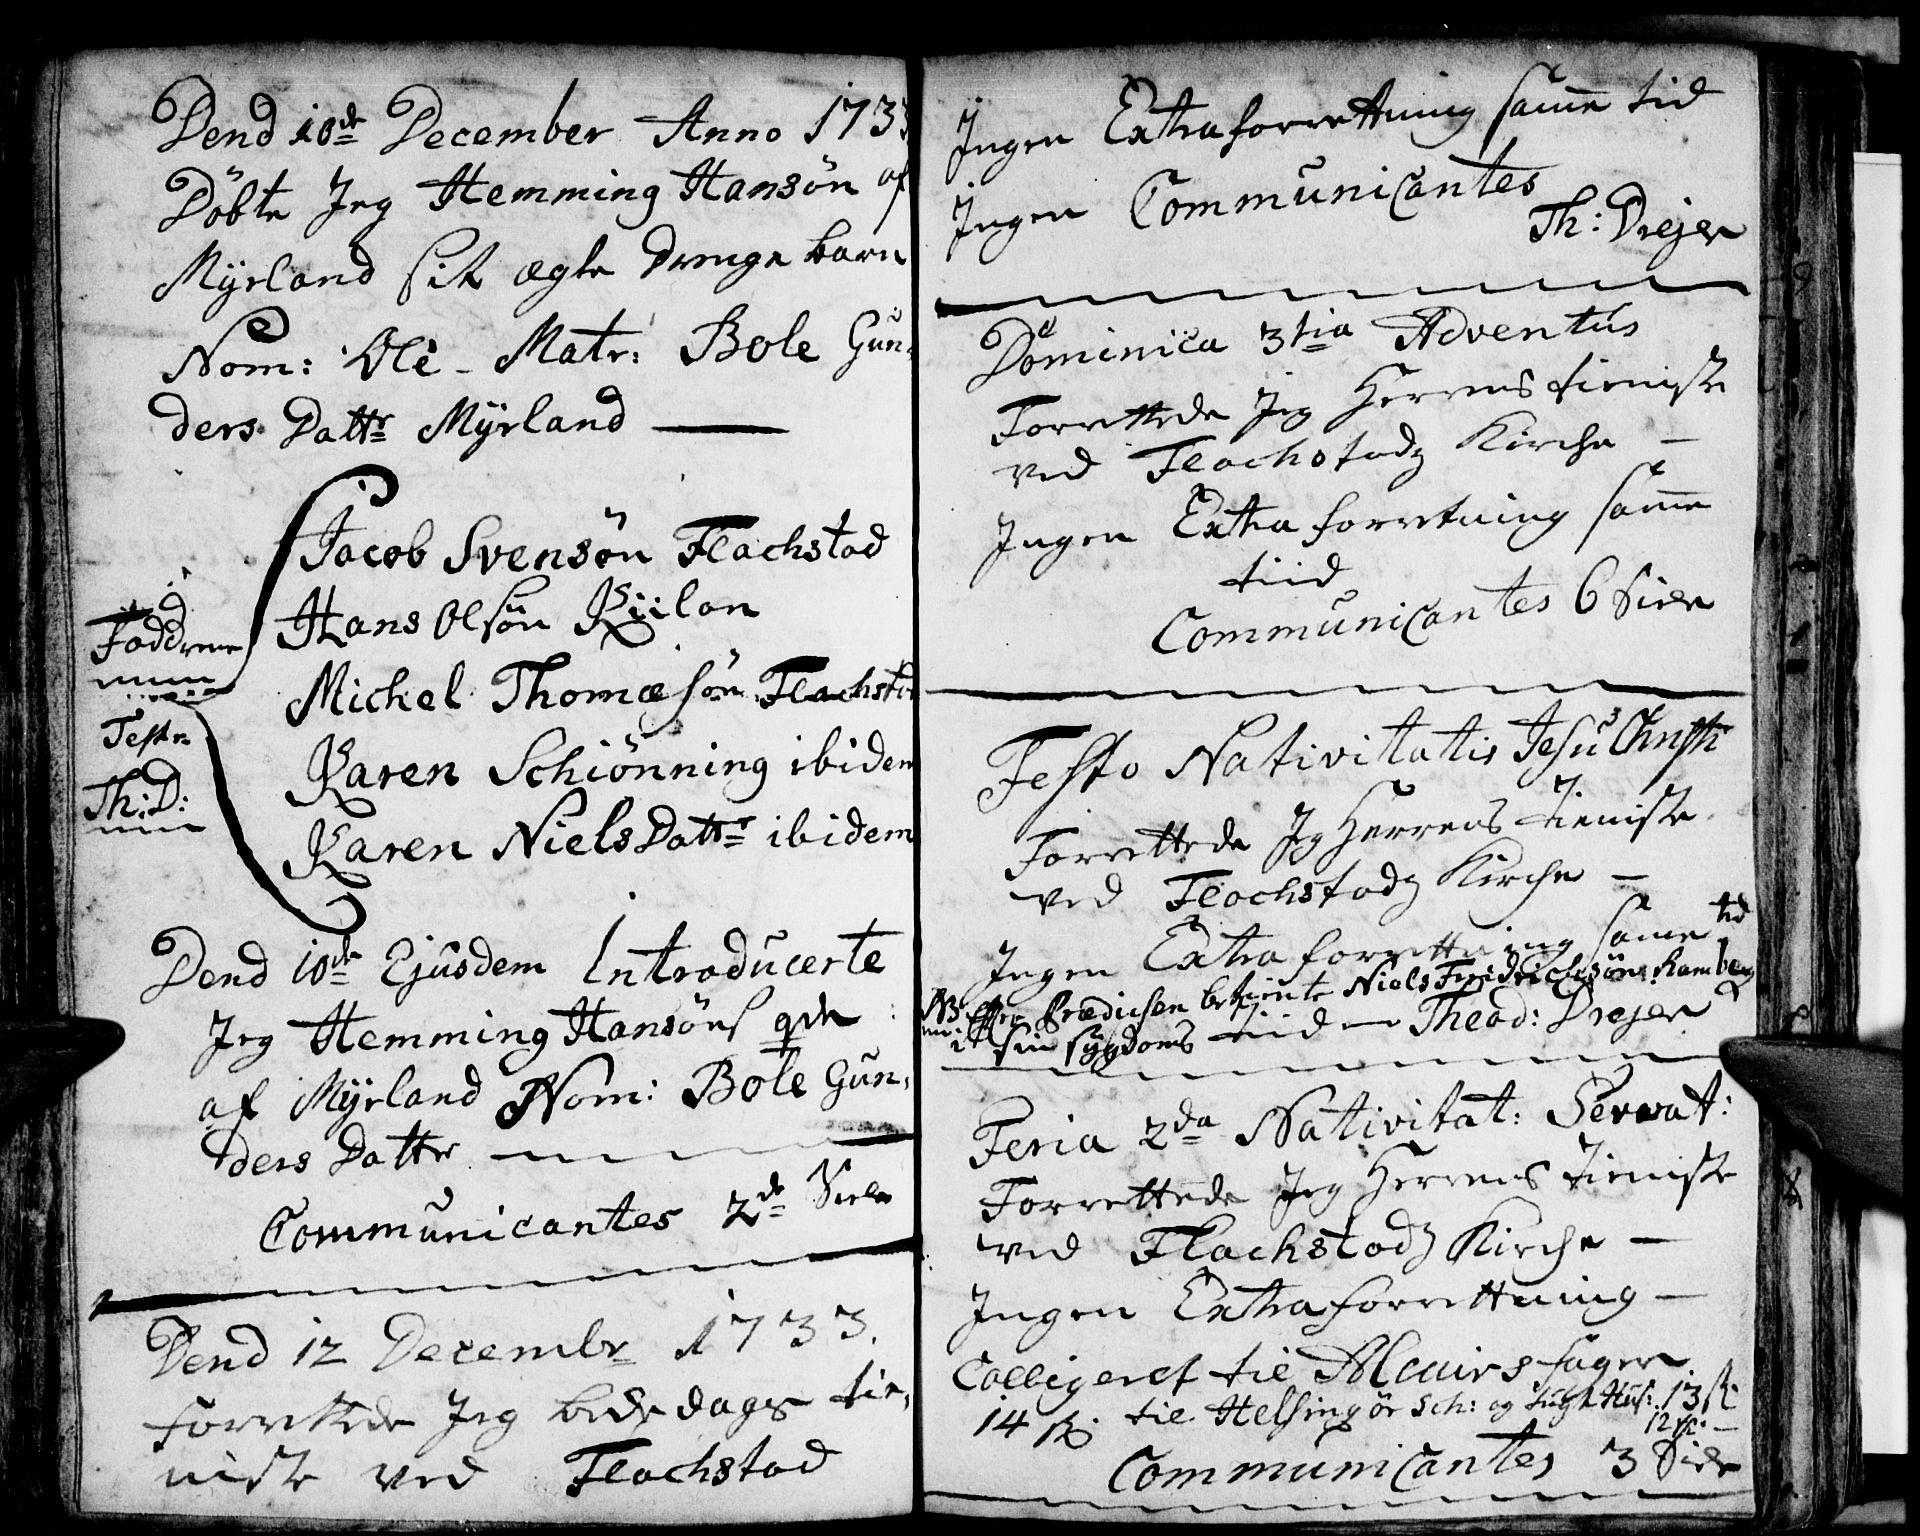 Dend 10de December Anno 1733
Döbte Jeg Hemming Hansön af
Myrland sit ægte Drenge barn
Nom: Ole - Matr: Bole Gun-
ders Dattr Myrland —
Jacob Svensön Flachstad
Hans Olsön Riilan
Michel Thomæsön Flachstad
Karen Schiönning ibidem
Karen Niels Dattr ibidem
Faddrene
Teste
Th: D:
Dend 10de Ejusdem Introducerte
Jeg Hemming Hansöns qde
af Myrland Nom: Bole Gun-
ders Dattr
Communicantes 2de Siele
Dend 12 Decembr 1733.
forrettede Jeg bededags tie-
niste ved Flachstad
Ingen Extraforrettning samme tid
Ingen Communicantes
Th: Drejer
Dominica 3tia Adventus
Forrettede Jeg Herrens tieniste
ved Flachstadz Kirche —
Ingen Extra forretning samme
tiid
Communicantes 6 Siele
Festo Nativitatis Jesu Christi
Forrettede Jeg Herrens tieniste
ved Flachstadz Kirche —
Ingen Extra forrettning samme tid
NB. efter Prædichen betiente Niels Friderichsön Ramberg
i sin sygdoms tiid — Theod: Drejer
Feria 2da Nativitat: Servat:
Forrettede Jeg Herrens tieniste
ved Flachstadz Kirche —
Ingen Extraforrettning —
Colligeret til Alcairs fanger
14 sk. til Helsingör Sch: og tugt Hus: 13 sk:
12 sk: —
Communicantes 3 Siele